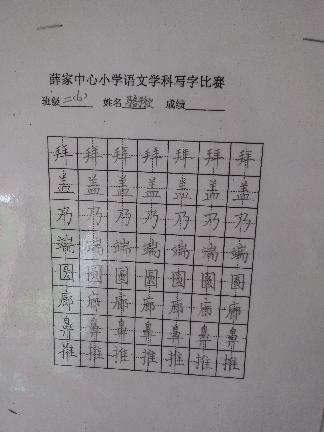 薛家中心小学语文学科写字比赛
班级 二(6) 姓名 成绩
拜 拜 拜 拜 拜 拜 拜
盖 盖 盖 盖 盖 盖 盖
乃 乃 乃 乃 乃 乃 乃
端 端 端 端 端 端 端
圆 圆 圆 圆 圆 圆 圆
廊 廊 廊 廊 廊 廊 廊
鼻 鼻 鼻 鼻 鼻 鼻 鼻
推 推 推 推 推 推 推